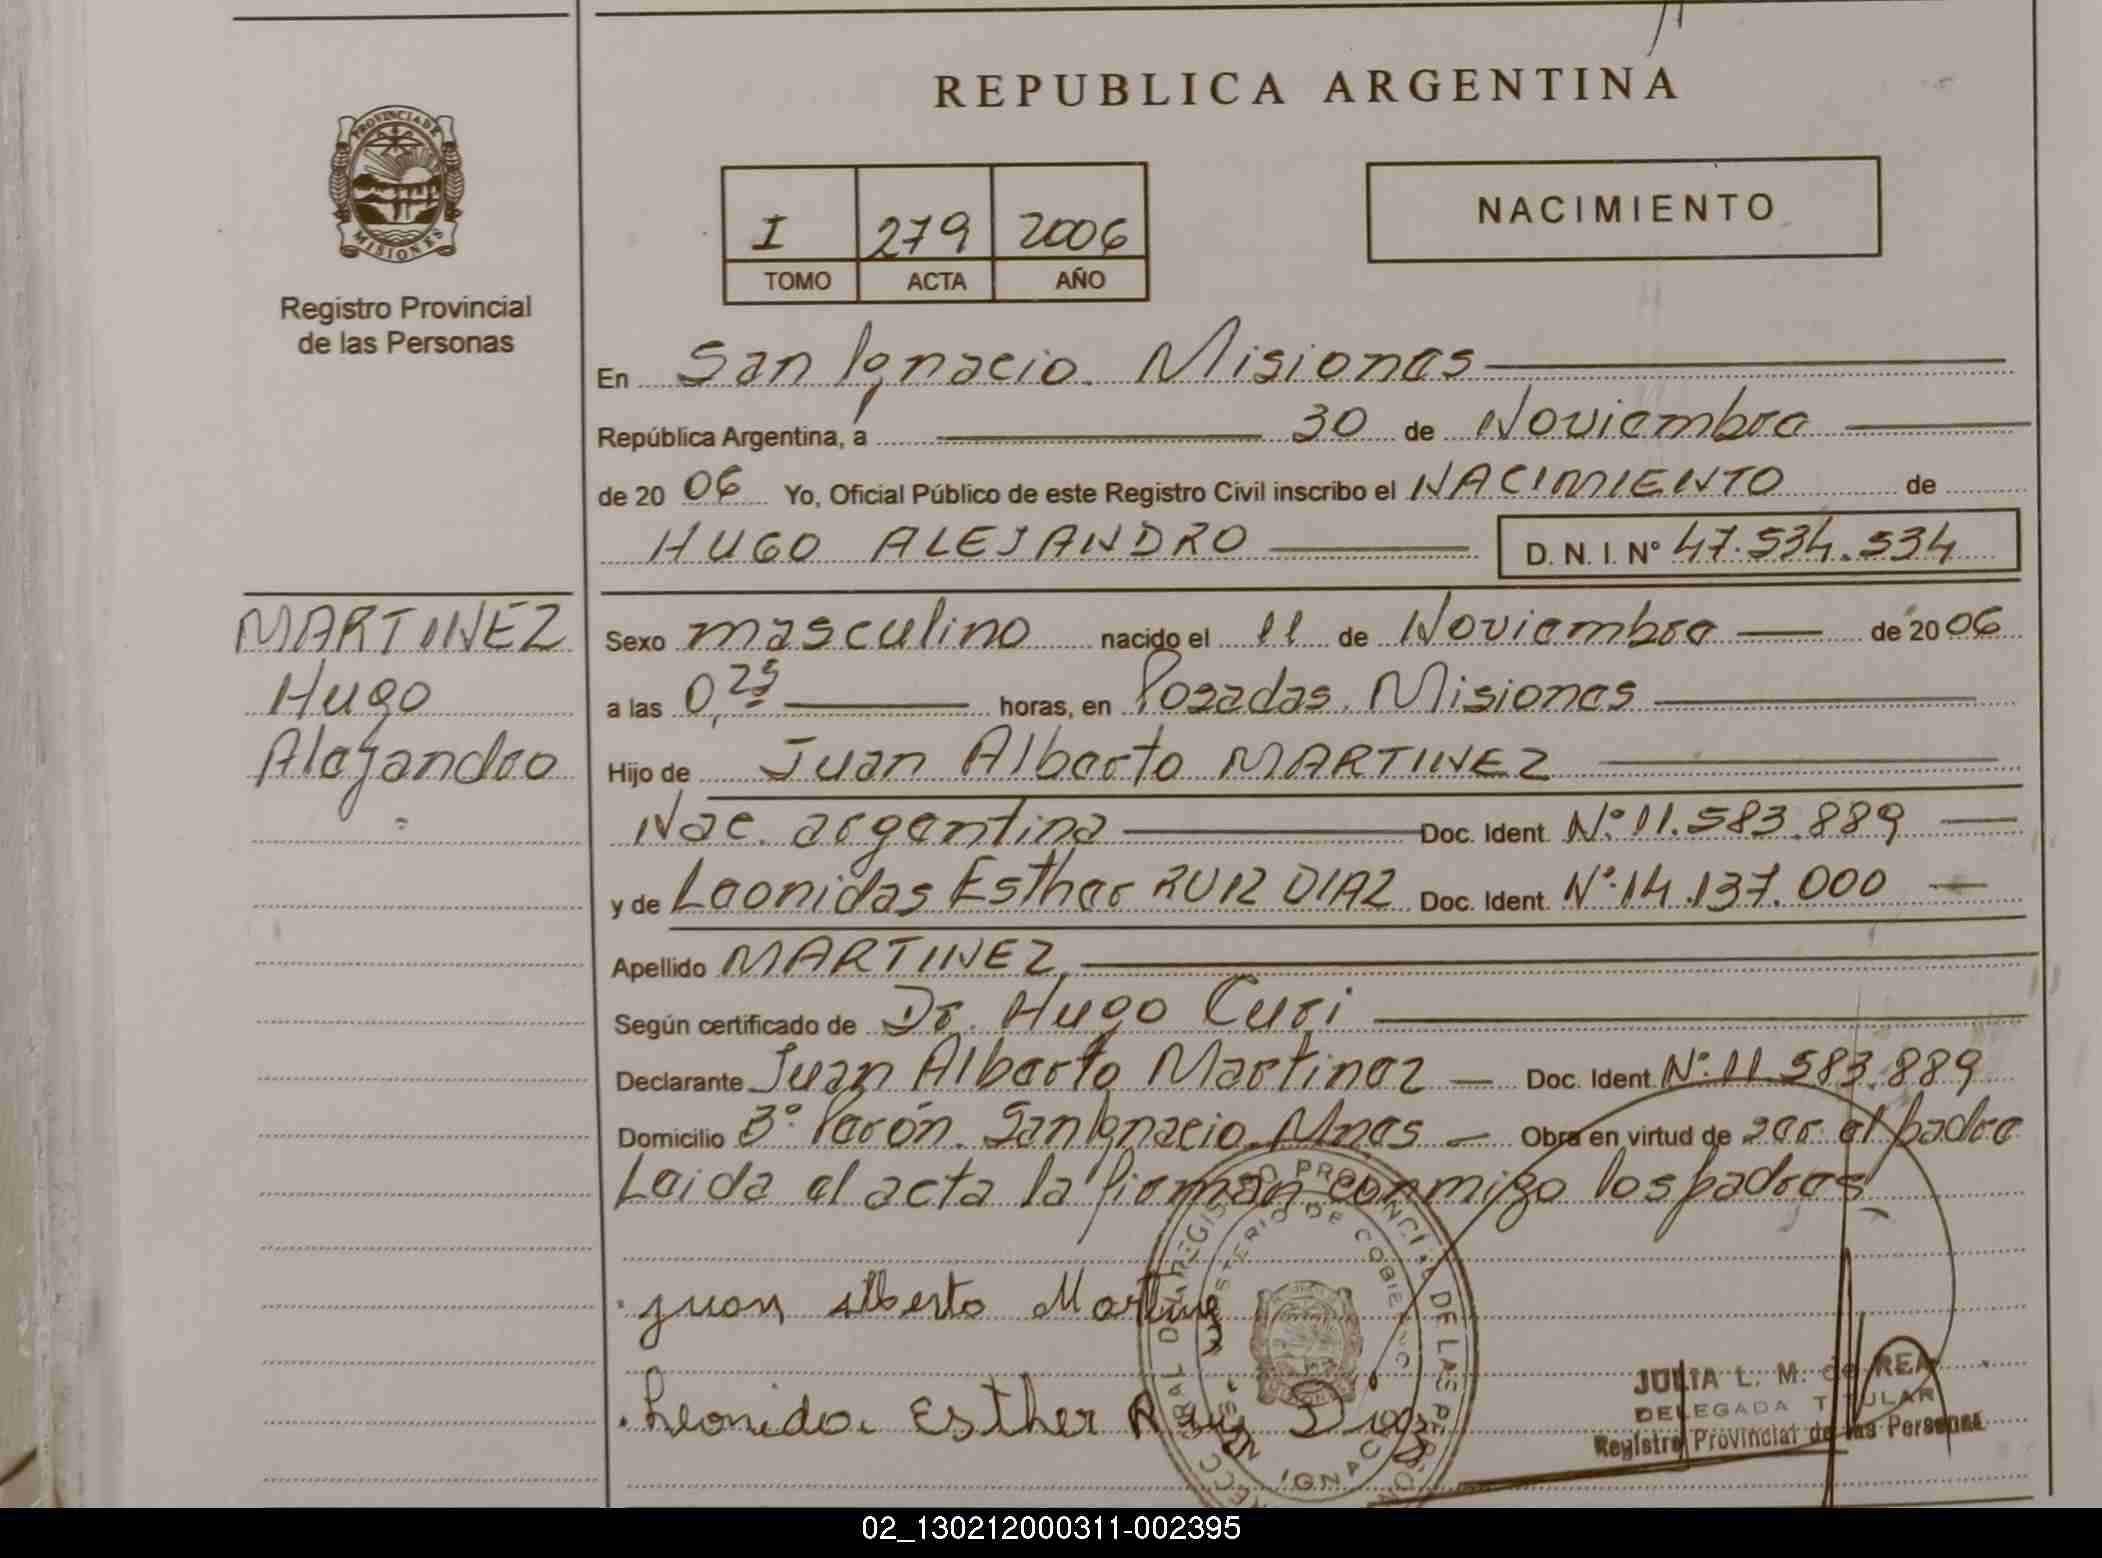 REPUBLICA ARGENTINA
PROVINCIA DE
MISIONES
Registro Provincial
de las Personas
I 279 2006
TOMO ACTA AÑO
NACIMIENTO
En San Ignacio. Misiones
República Argentina, a 30 de Noviembre
de 20 06 Yo, Oficial Público de este Registro Civil inscribo el NACIMIENTO de
HUGO ALEJANDRO D. N. I. Nº 47.534.534
MARTINEZ
Hugo
Alejandro
Sexo masculino nacido el 11 de Noviembre de 20 06
a las 0,25 horas, en Posadas. Misiones
Hijo de Juan Alberto MARTINEZ
Nac. argentina Doc. Ident. Nº 11.583.889
y de Leonidas Esther RUIZ DIAZ Doc. Ident. Nº 14.137.000
Apellido MARTINEZ
Según certificado de Dr. Hugo Curi
Declarante Juan Alberto Martinez Doc. Ident. Nº 11.583.889
Domicilio Bº Perón. San Ignacio. Mnes Obra en virtud de ser el padre
Leida el acta la firman conmigo los padres
Juan Alberto Martinez
Leonida Esther Ruiz Diaz
JULIA L. M. de REA
DELEGADA TITULAR
Registro Provincial de las Personas
02_130212000311-002395